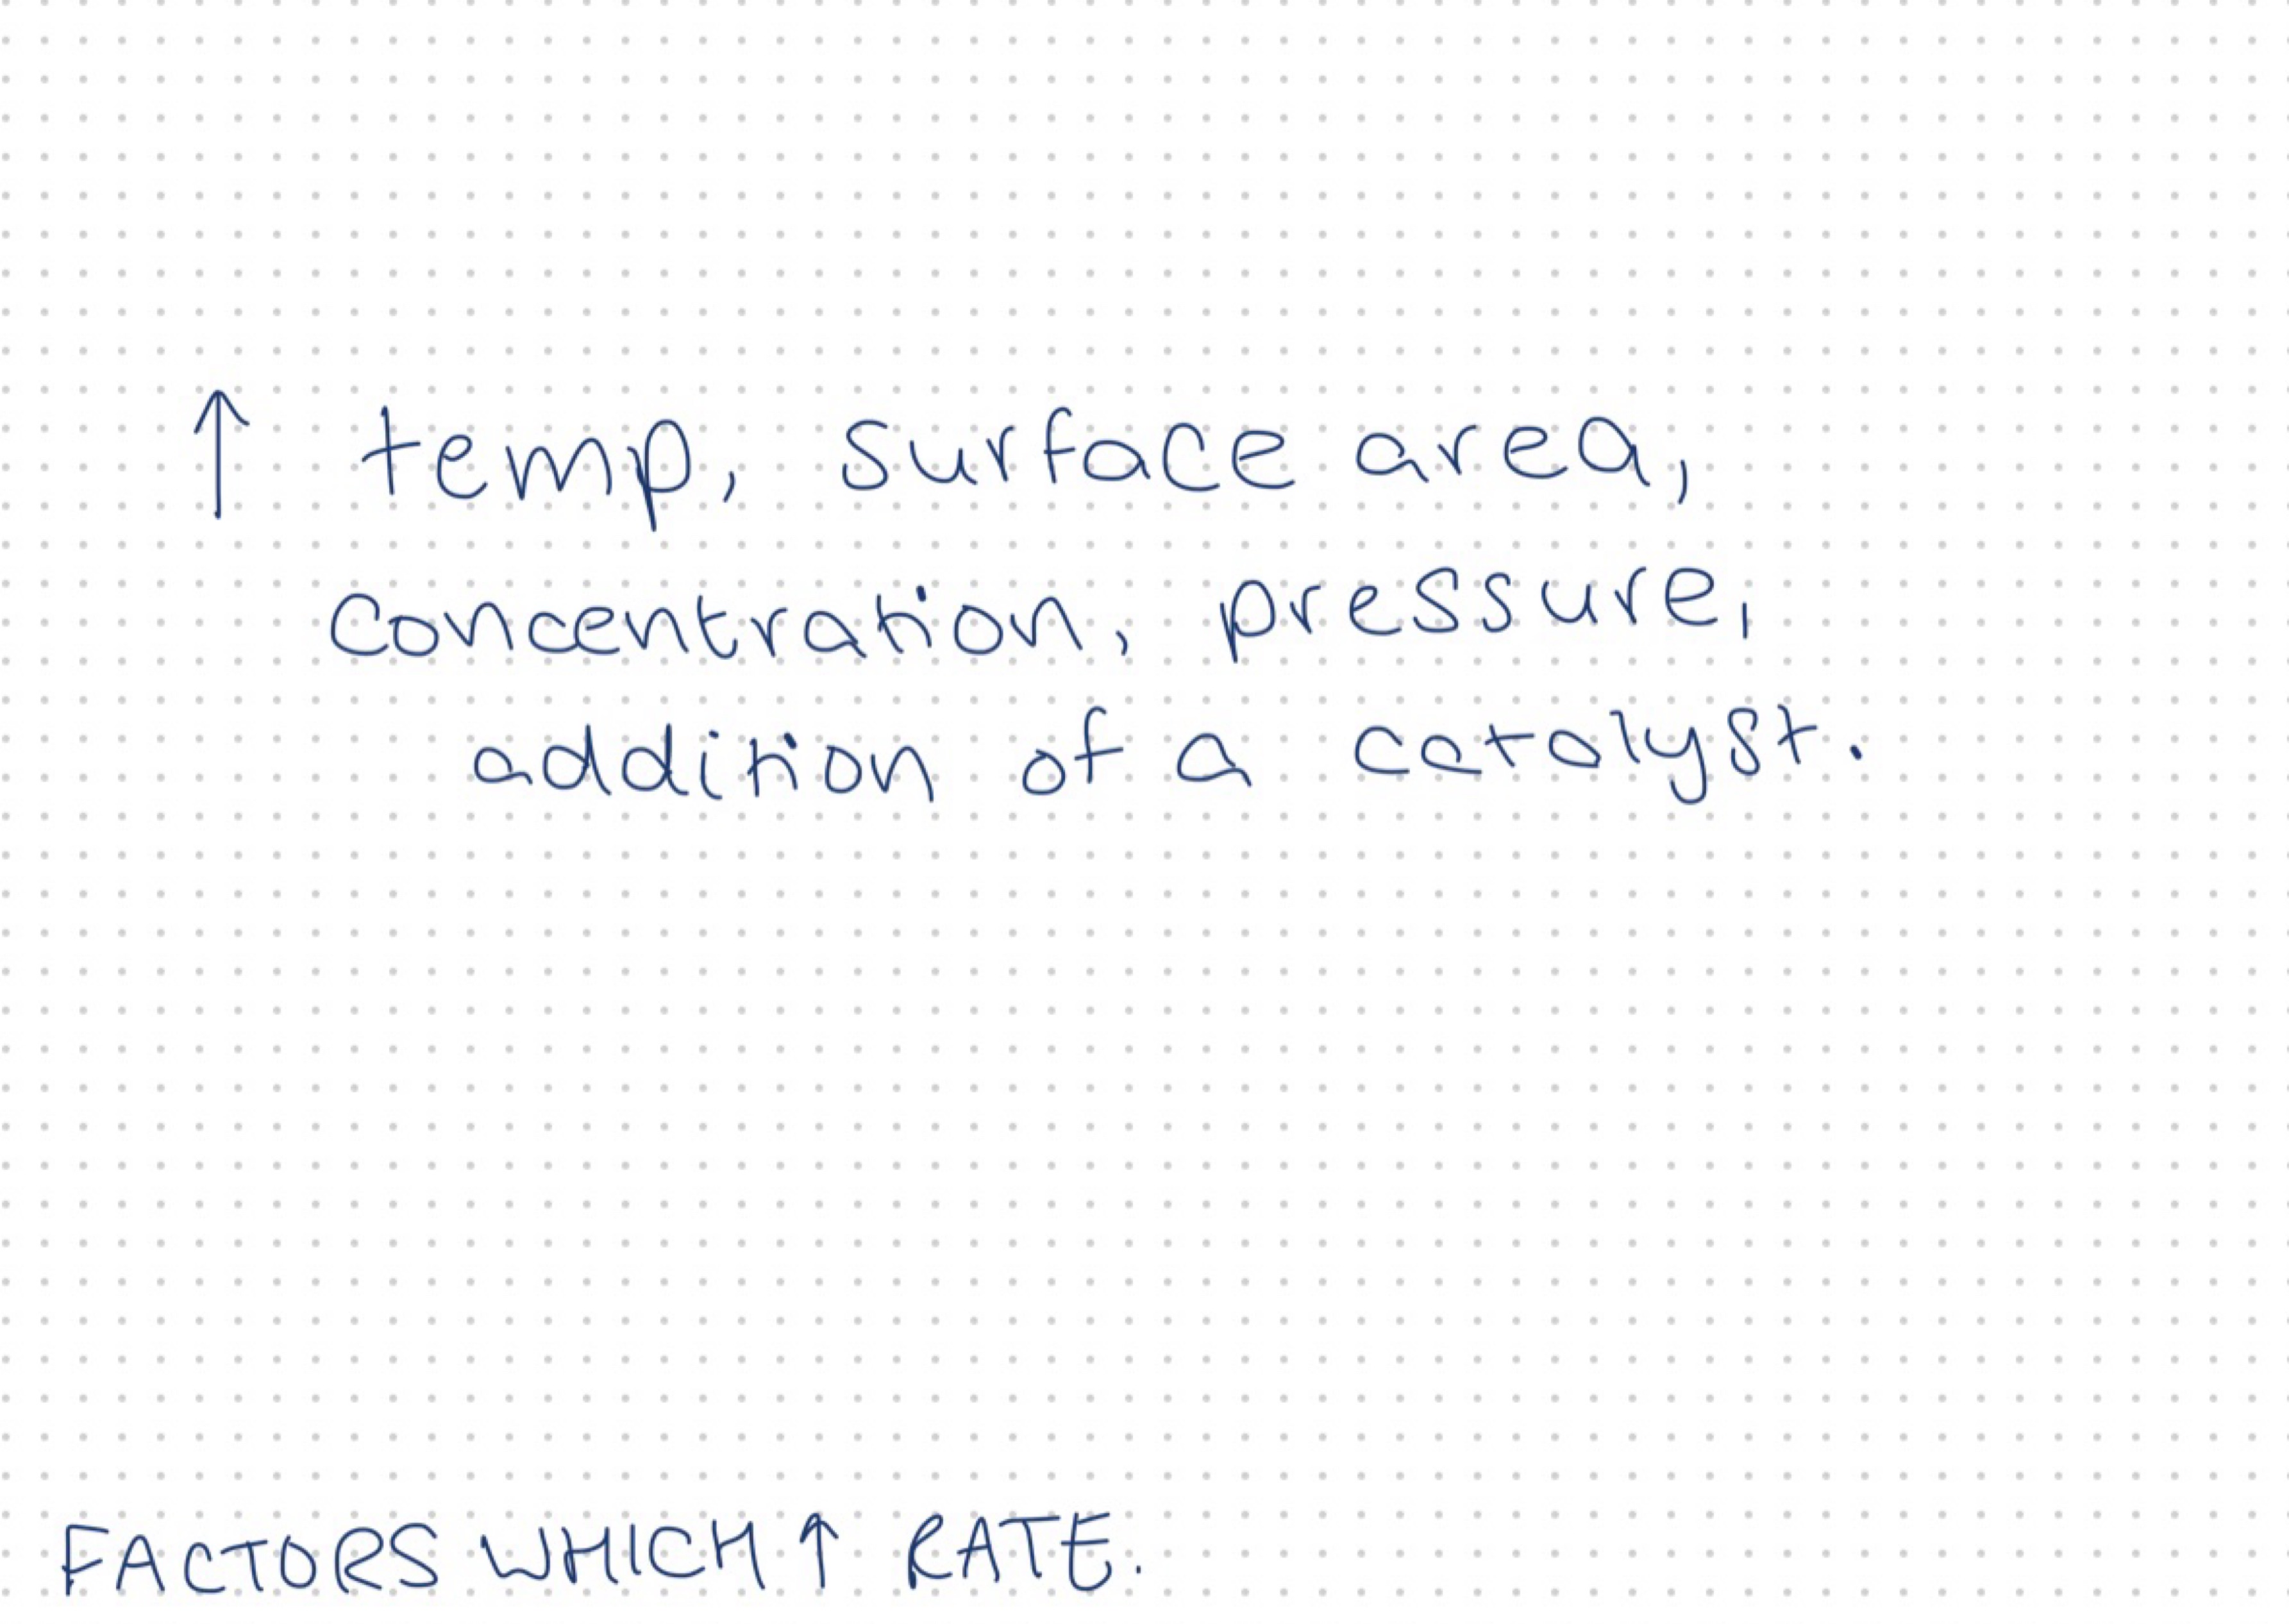 ↑ temp, surface area,
concentration, pressure,
addition of a catalyst.
FACTORS WHICH ↑ RATE.